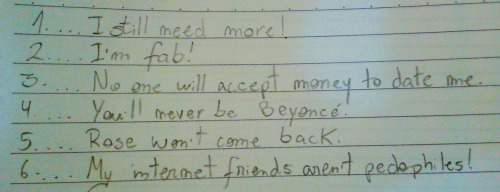 1.... I still need more!
2.... I'm fab!
3.... No one will accept money to date me.
4.... You'll never be Beyoncé.
5.... Rose won't come back.
6.... My internet friends aren't pedophiles!